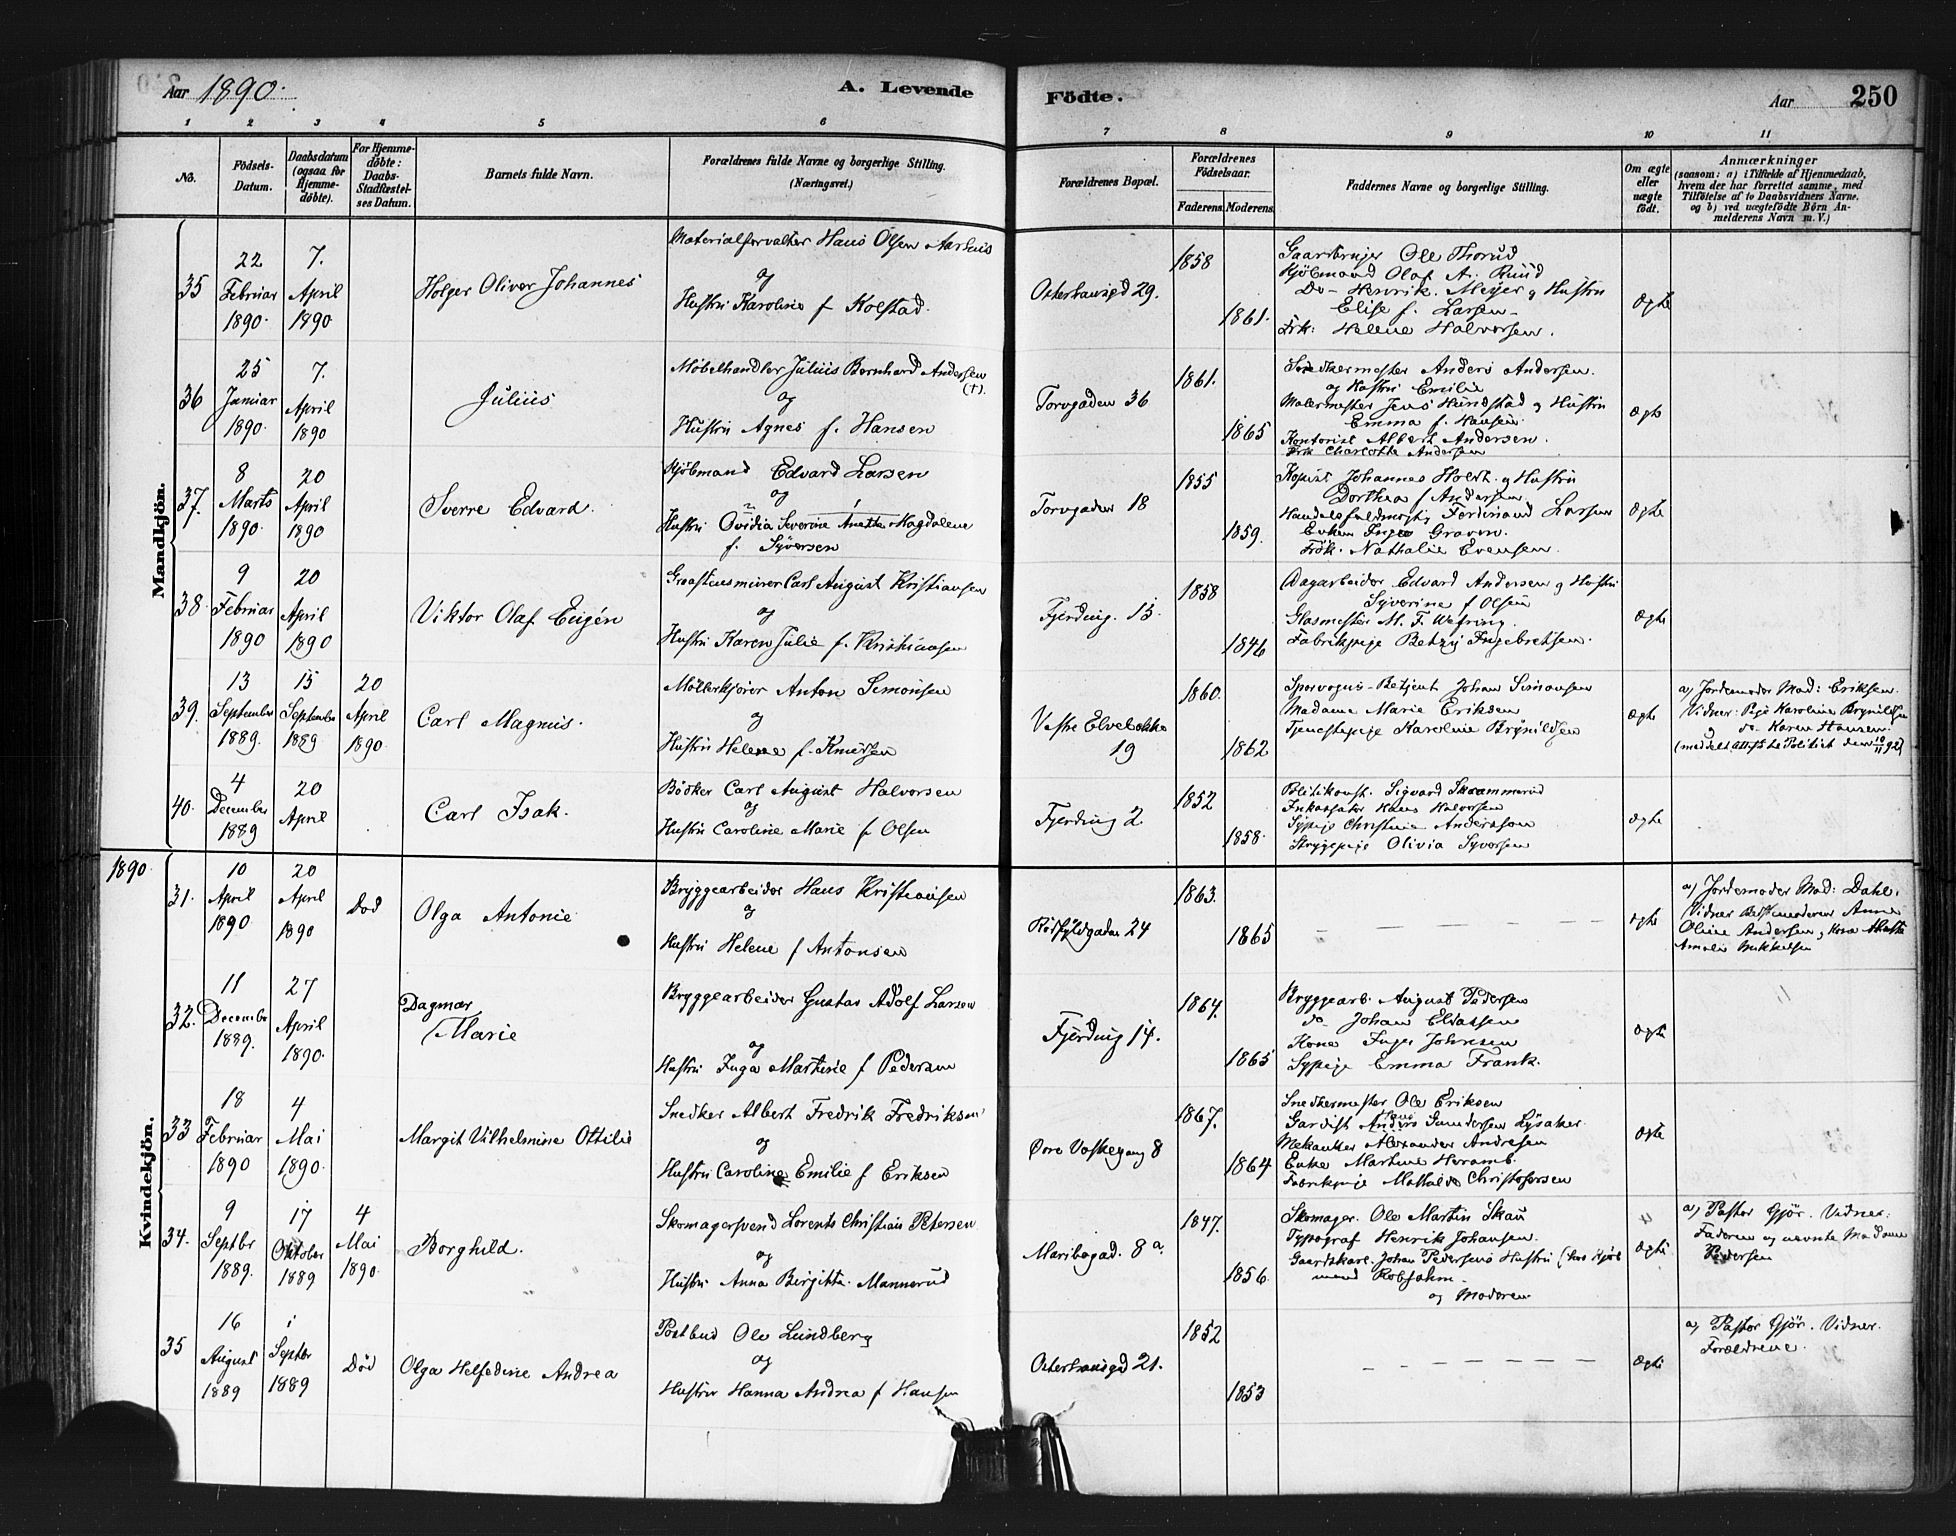 Aar 1890.
A. Levende
Födte.
Aar
250
1 2 3 4 5 6 7 8 9 10 11
No.
Födsels-Datum.
Daabsdatum (ogsaa for Hjemme-döbte).
For Hjemme-döbte: Daabs-Stadfæstel-ses Datum.
Barnets fulde Navn.
Forældrenes fulde Navne og borgerlige Stilling.
(Næringsvei.)
Forældrenes Bopæl.
Forældrenes Födselsaar.
Faderens. Moderens.
Faddernes Navne og borgerlige Stilling.
Om ægte eller uægte født.
Anmærkninger
(saasom: a) i Tilfælde af Hjemmedaab, hvem der har forrettet samme, med Tilföielse af to Daabsvidners Navne, og b) ved uægtefödte Börn An-melderens Navn m. V.)
Mandkjön.
35
22 Februar 1890.
7. April 1890
Holger Oliver Johannes
Materialforvalter Hans Olsen Aarhus
og
Hustru Karoline f. Kolstad.
Osterhausgd 29.
1858
1861.
Gaardbruger Ole Thorud
Kjöbmand Olaf A. Ruud
Do- Henrik Meyer og Hustru
Elise f. Larsen
Frk: Helene Halvorsen.
Ægte
36
25 Januar 1890.
7. April 1890
Julius
Møbelhandler Julius Bernhard Andersen (†).
og
Hustru Agnes f. Hansen
Torvgaden 36
1861.
1865
Snedkermester Anders Andersen.
og Hustru Emilie
Malermester Jens Hundstad og Hustru
Emma f. Hansen
Kontorist Albert Andersen.
Frk Charlotte Andersen
Ægte
37.
8 Marts 1890.
20 April 1890
Sverre Edvard.
Kjöbmand Edvard Larsen
og
Hustru Ovidia Severine Anette Magdalene
f. Syversen
Torvgaden 18
1855
1859.
Kopist Johannes Holst og Hustru
Dorthea f Andersen
Handelsfuldmægtig Ferdinand Larsen
Enken Inger Graven.
Frök. Nathalie Evensen.
Ægte
38.
9 Februar 1890
20 April 1890
Viktor Olaf Eugén
Graastensmurer Carl August Kristiansen
og
Hustru Karen Julie f. Kristiansen
Fjerding. 15.
1858
1846
Dagarbeider Edvard Andersen og Hustru
Syverine f Olsen
Glasmester M. F. Wefring.
Fabrikpige Betzy Ingebretsen.
Ægte
39.
13 September 1889.
15 September 1889
20 April 1890.
Carl Magnus.
Möllerkjører Anton Simonsen
og
Hustru Helene f. Knudsen
Vestre Elvebakke 19
1860.
1862
Sporvogns-Betjent Johan Simonsen
Madame Marie Eriksen
Tjenestepige Karoline Brynildsen
Ægte
a) Jordemoder Mad: Eriksen.
Vidner: Pige Karoline Brynildsen
og do- Karen Hansen.
(meddelt Att. fra Politiet den 10/11 92)
40.
4 December 1889
20 April
Carl Isak.
Bödker Carl August Halvorsen
og
Hustru Caroline Marie f Olsen
Fjerding 2.
1852
1858.
Politikonst. Sigvard Skrammerud
Inkassator Hans Halvorsen
Sypige Christine Andersson
Strygepige Olivia Syversen
Ægte
1890
Kvindekjön.
31.
10 April 1890
20 April 1890
Död
Olga Antonie
Bryggearbeider Hans Kristiansen
og
Hustru Helene f Antonsen
Rödfyldgaden 24
1863.
1865
Ægte
a) Jordemoder Mad: Dahl.
Vidner Bestemoderen Anne
Oline Andersen og Kone
Amalie Mikkelsen
32.
11 December 1889.
27 April 1890.
Dagmar
Marie
Bryggearbeider Gustav Adolf Larsen
og
Hustru Inga Martinie f Pedersen
Fjerding 14.
1864.
1865
Bryggearb. August Pedersen
do Johan Eliassen
Kone Inger Johnsen
Sypige Emma Frank.
Ægte
33
18 Februar 1890
4 Mai 1890.
Margit Vilhelmine Ottilie
Snedker Albert Fredrik Fredriksen
og
Hustru Caroline Emilie f Eriksen
Øvre Vaskegang 8
1867.
1864
Snedkermester Ole Eriksen
Gardist Anders Gundersen Lysaker
Mekaniker Alexander Andresen
Enke Martine Heramb.
Fabrikpige Mathilde Christofersen
Ægte
34.
9 Septbr 1889.
17 Oktober 1889
4 Mai 1890.
Borghild.
Skomagersvend Lorents Christian Petersen
og
Hustru Anna Birgitta Mannerud
Maribogad. 8 a.
1847.
1856.
Skomager. Ole Martin Skau
Typograf Henrik Johansen.
Gaardskarl. Johan Pedersens Hustru (hos Kjöb
mand Robsahm
og Moderen
Ægte
a) Pastor Gjør. Vidner.
Faderen og nevnte Madame
Pedersen
35
16 August 1889
1 Septbr 1889
Död
Olga Helfedine Andrea
Postbud Ole Lundberg
og
Hustru Hanna Andrea f Hansen
Osterhausgd 21.
1852
1853
Ægte
a) Pastor Gjør. Vidner.
Forældrene.